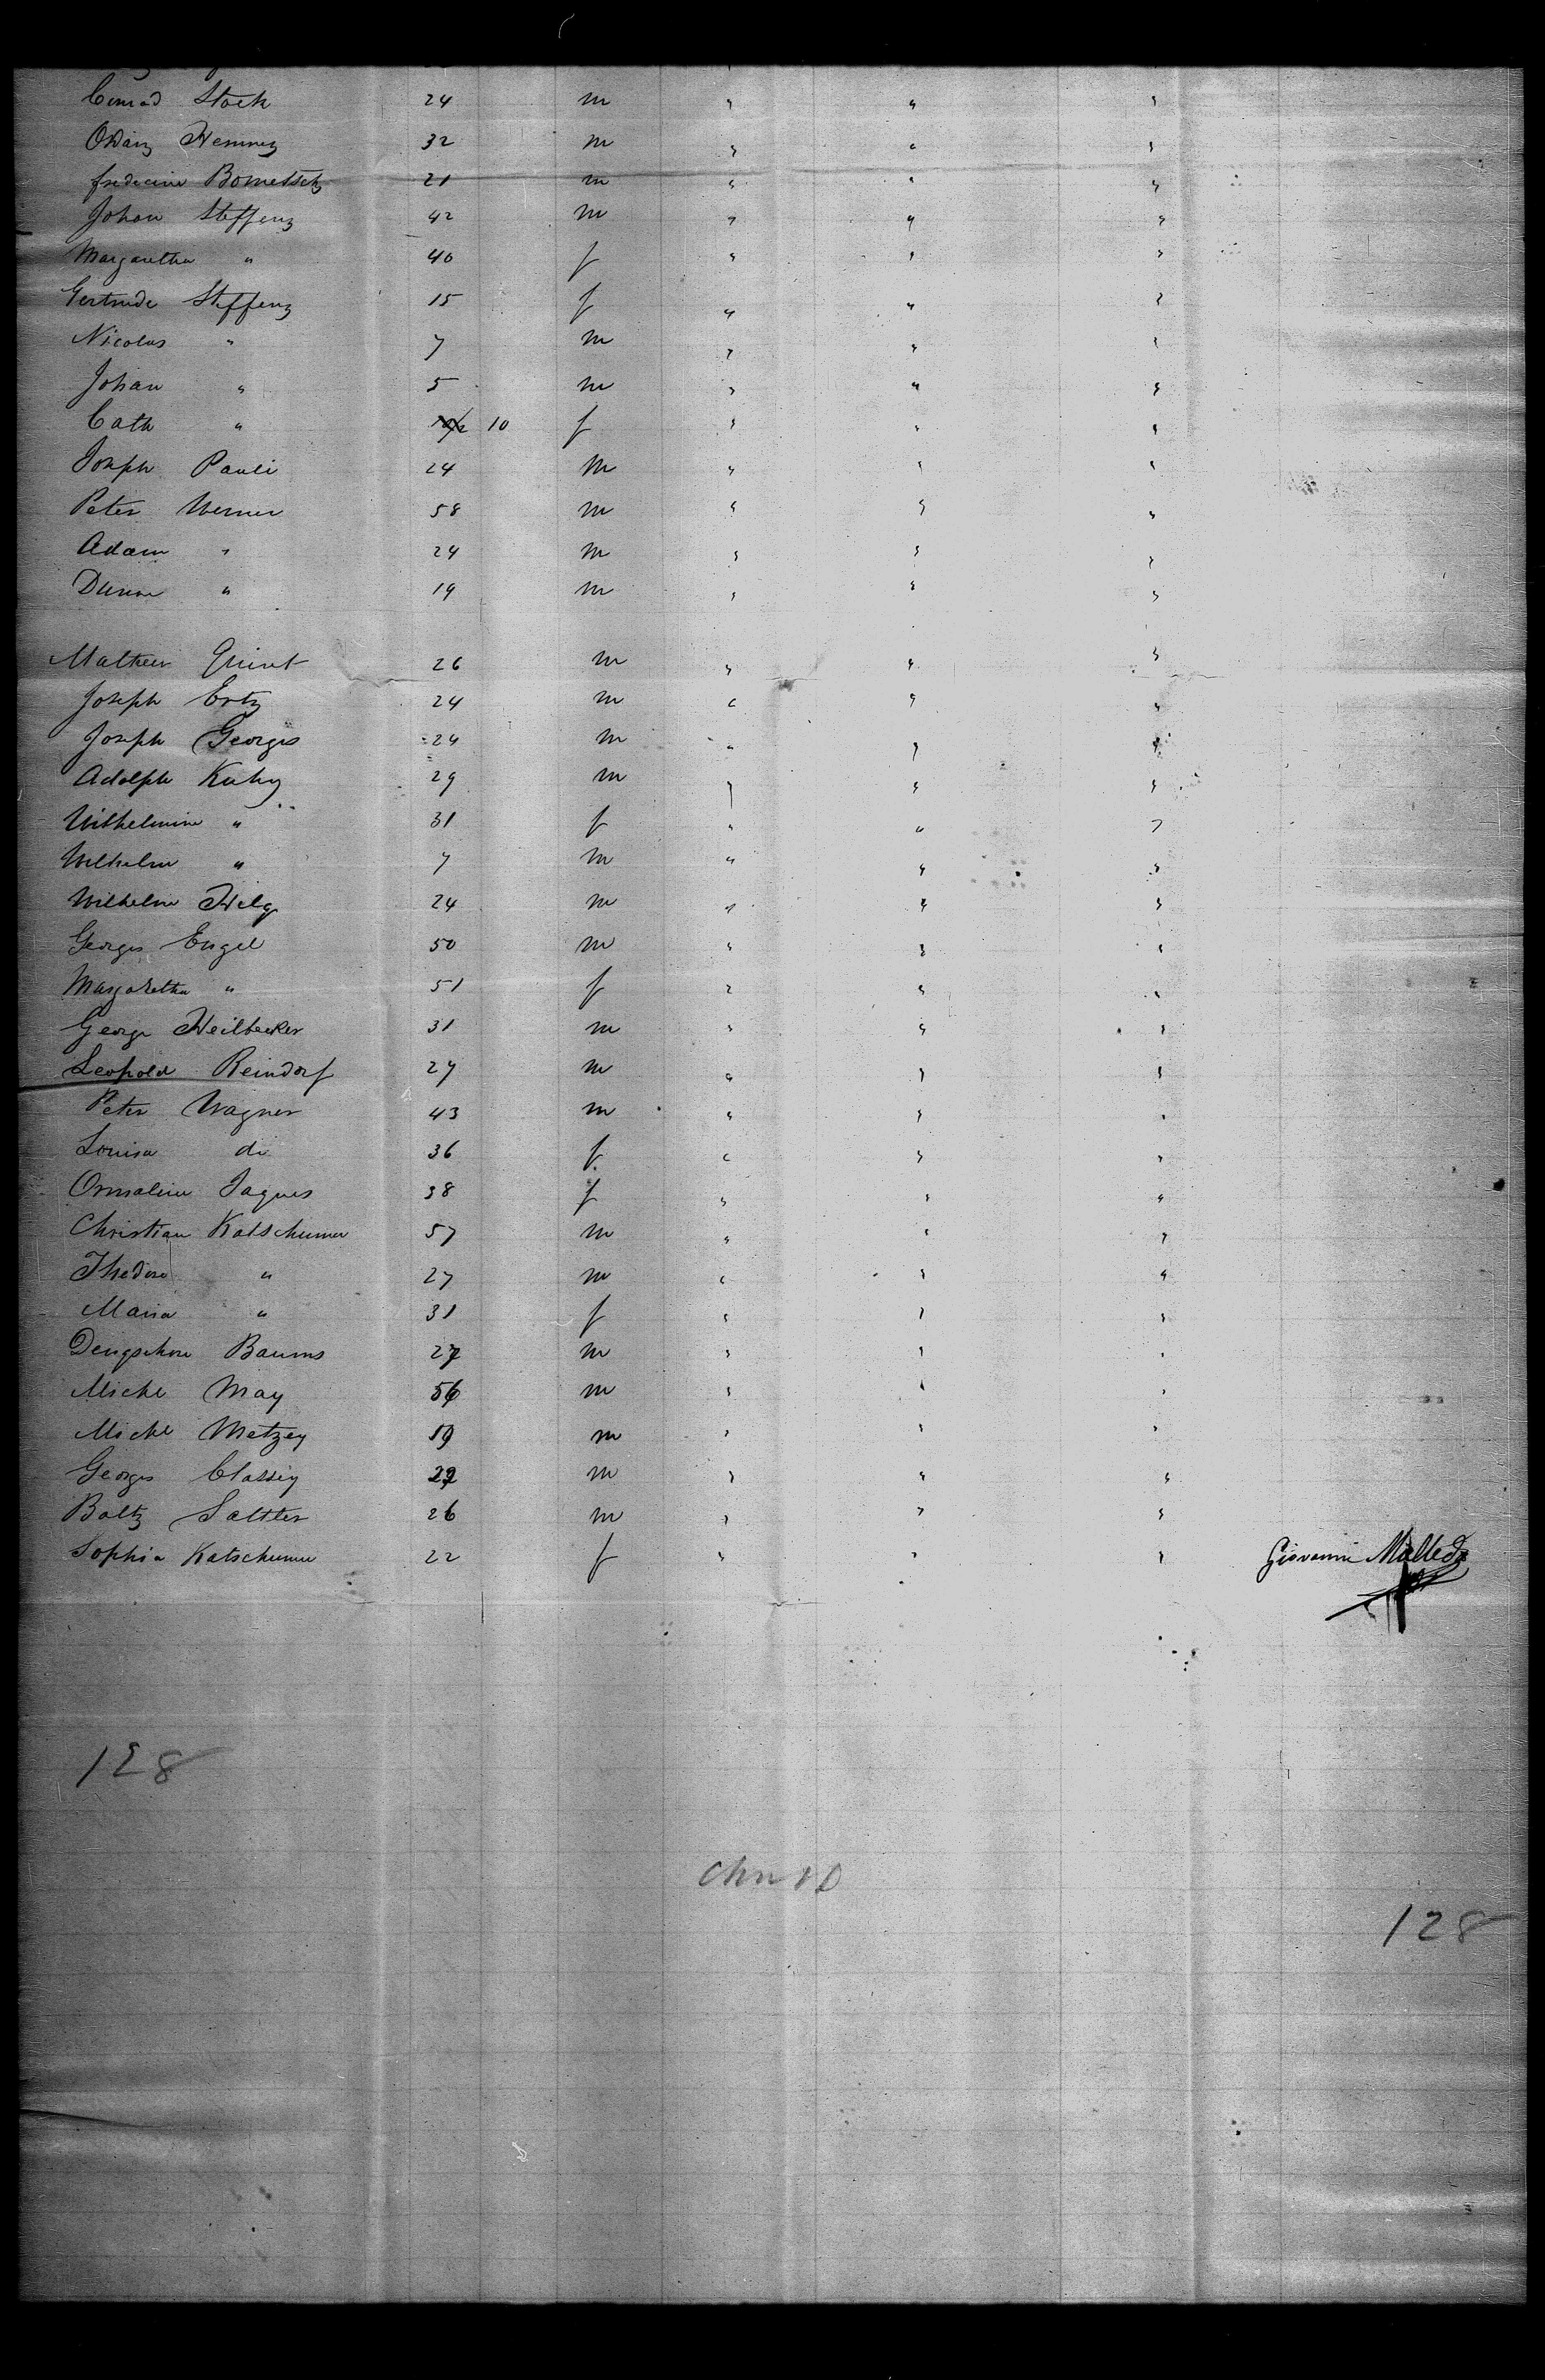 Conrad Stock 24 m " " "
32 m " " "
21 m " " "
Johan Steffens 42 m " " "
Margaretha " 40 f " " "
Gertrude Steffens 15 f " " "
Nicolas " 7 m " " "
Johan " 5 m " " "
Cath " 10 f " " "
Joseph Pauli 24 m " " "
Peter Werner 58 m " " "
Adam " 24 m " " "
" 19 m " " "
Quint 26 m " " "
Joseph Ertz 24 m " " "
Joseph Georges 24 m " " "
Adolph Kuhn 29 m " " "
Wilhelmine " 31 f " " "
Wilhelm " 7 m " " "
Wilhelm 24 m " " "
Georges Engel 50 m " " "
Margaretha " 51 f " " "
George Heilbecker 31 m " " "
Leopold Reindorf 27 m " " "
Peter Wagner 43 m " " "
Louisa do 36 f " " "
Jaques 38 f " " "
Christian Katschumer 57 m " " "
Thedore " 27 m " " "
Maria " 31 f " " "
Baums 27 m " " "
Michl May 56 m " " "
Michl Metzey 19 m " " "
Georges Classig m " " "
Baltz Sattler 26 m " " "
Sophia Katschumer 22 f " " "
Giovanni
128
128